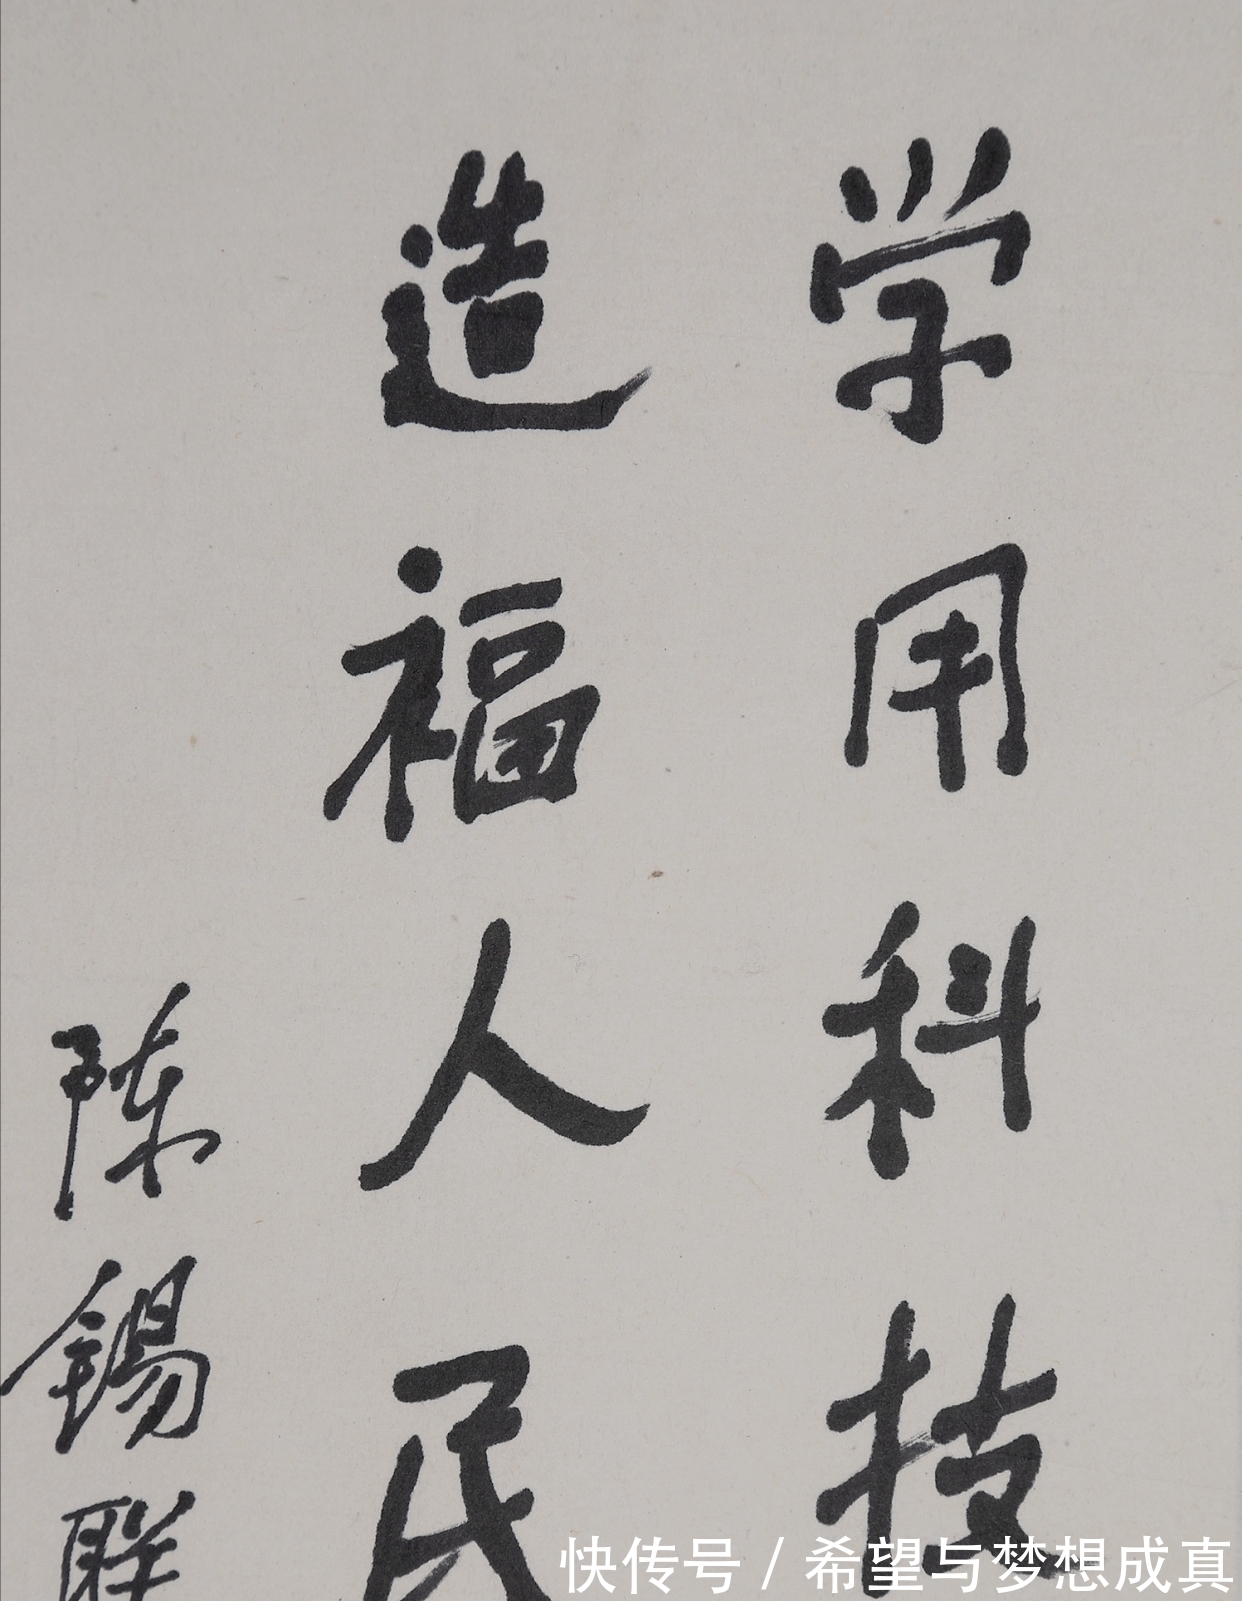 学用科技
造福人民
陈锡联
快传号 / 希望与梦想成真